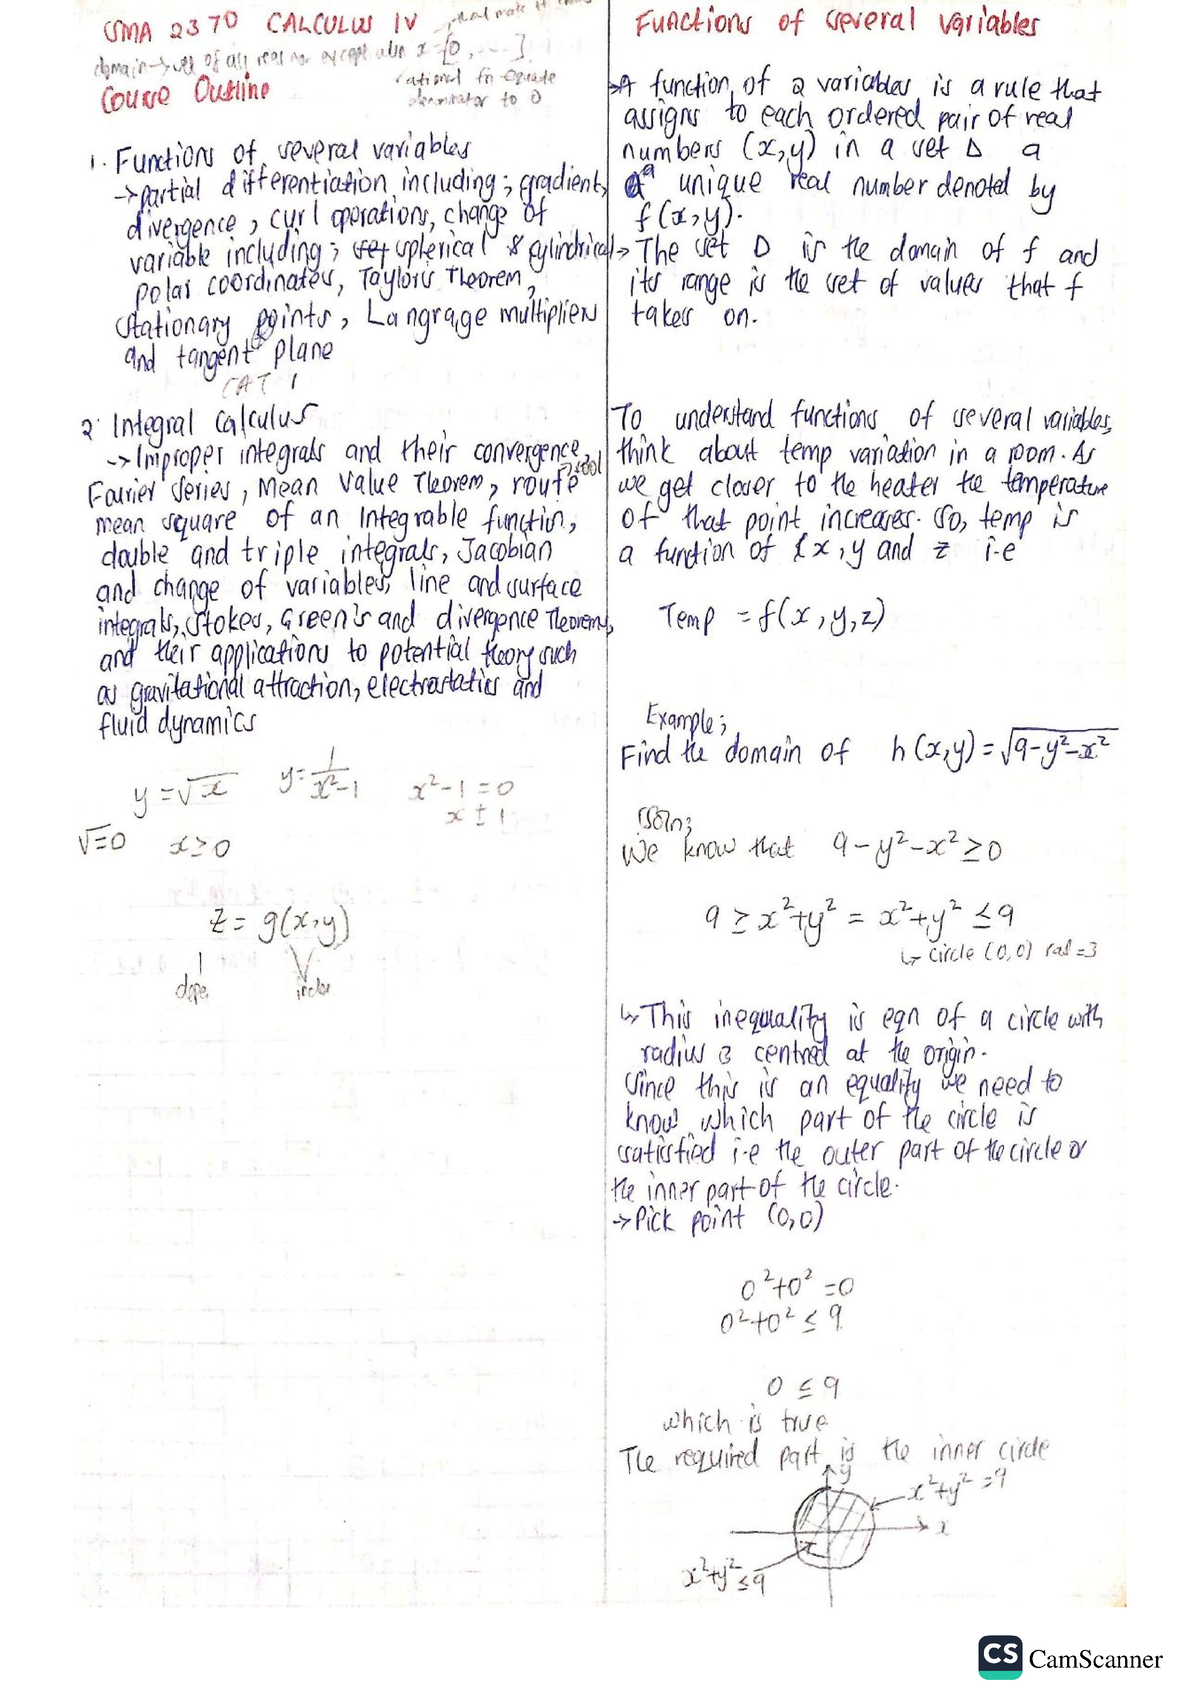 SMA 2370 CALCULUS IV
domain → set of all real no except when x = [0, ...].
rational fn equate
denominator to 0
Course Outline
1. Functions of several variables
→ partial differentiation including; gradient,
divergence, curl operations, change of
variable including; spherical & cylindrical
polar coordinates, Taylor's Theorem,
stationary points, Langrage multipliers
and tangent plane
CAT 1
2. Integral Calculus
→ Improper integrals and their convergence,
Fourier series, Mean Value Theorem, route
mean square of an Integrable function,
double and triple integrals, Jacobian
and change of variables, line and surface
integrals, Stokes, Green's and divergence Theorems,
and their applications to potential theory such
as gravitational attraction, electrostatics and
fluid dynamics
y = √x y = 1/(x²-1) x²-1 = 0
x ± 1
√=0 x ≥ 0
z = g(x,y)
Functions of several variables
→ A function of 2 variables is a rule that
assigns to each ordered pair of real
numbers (x,y) in a set D a
unique real number denoted by
f(x,y).
→ The set D is the domain of f and
its range is the set of values that f
takes on.
To understand functions of several variables,
think about temp variation in a room. As
we get closer to the heater the temperature
of that point increases. So, temp is
a function of x, y and z i.e
Temp = f(x, y, z)
Example;
Find the domain of h(x,y) = √9-y²-x²
Soln;
We know that 9 - y² - x² ≥ 0
9 ≥ x²+y² = x²+y² ≤ 9
↳ circle (0,0) rad = 3
↳ This inequality is eqn of a circle with
radius 3 centred at the origin.
Since this is an equality we need to
know which part of the circle is
satisfied i.e the outer part of the circle or
the inner part of the circle.
→ Pick point (0,0)
0²+0² = 0
0²+0² ≤ 9
0 ≤ 9
which is true
The required part is the inner circle
y
x²+y² = 9
x
x²+y² ≤ 9
CS CamScanner